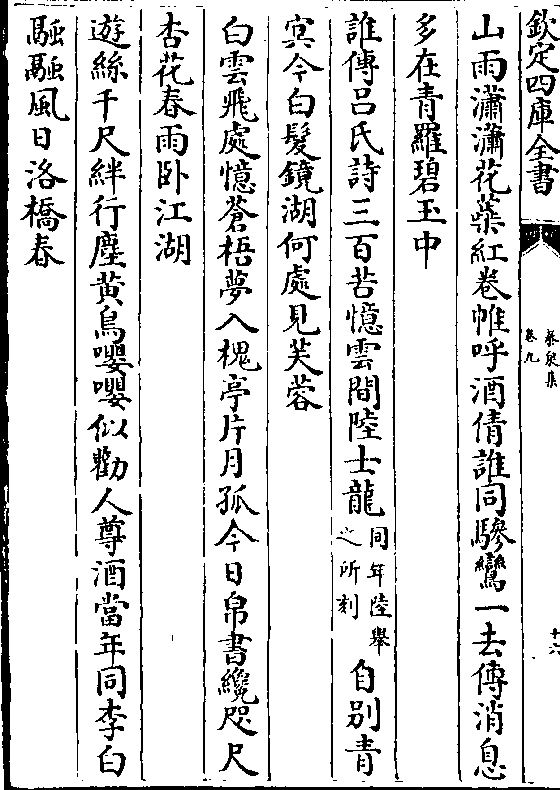 欽定四庫全書
泰泉集
卷九
十六
山雨瀟瀟花藥紅卷帷呼酒倩誰同驂鸞一去傳消息
多在青羅碧玉中
誰傳呂氏詩三百苦憶雲間陸士龍同年陸舉之所刻自別青
冥今白髮鏡湖何處見芙蓉
白雲飛處憶蒼梧夢入槐亭片月孤今日帛書纔咫尺
杏花春雨卧江湖
遊絲千尺絆行塵黄鳥嚶嚶似勸人尊酒當年同李白
驅驅風日洛橋春